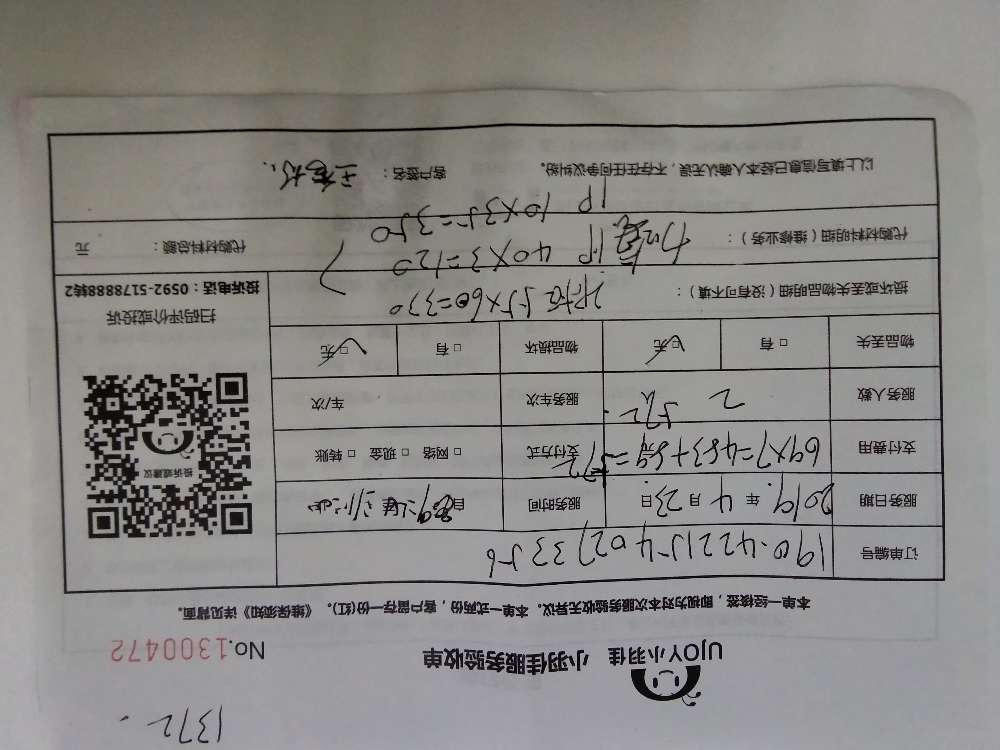 1372.
UJOY小羽佳 小羽佳服务验收单 No.1300472
本单一经接签，即视为对本次服务验收无异议。本单一式两份，客户留存一份(红)。《维保须知》详见背面。
订单编号 1904221540273356
服务日期 2019年4月23日 服务时间
支付费用 69×7=483+89=572 支付方式 □网络 □现金 □转账
服务人数 2人 572. 服务车次 车/次
物品丢失 □有 □无 物品损坏 □有 □无
投诉或建议
扫码评价或投诉
投诉电话：0592-5178888转2
损坏或丢失物品明细（没有可不填）：
55×6=330
代购材料明细（维修业务）： 40×3=120
代购材料总额： 元
1P 10×35=350
以上填写信息已经本人确认无误，不存在任何争议纠纷。 客户签名：